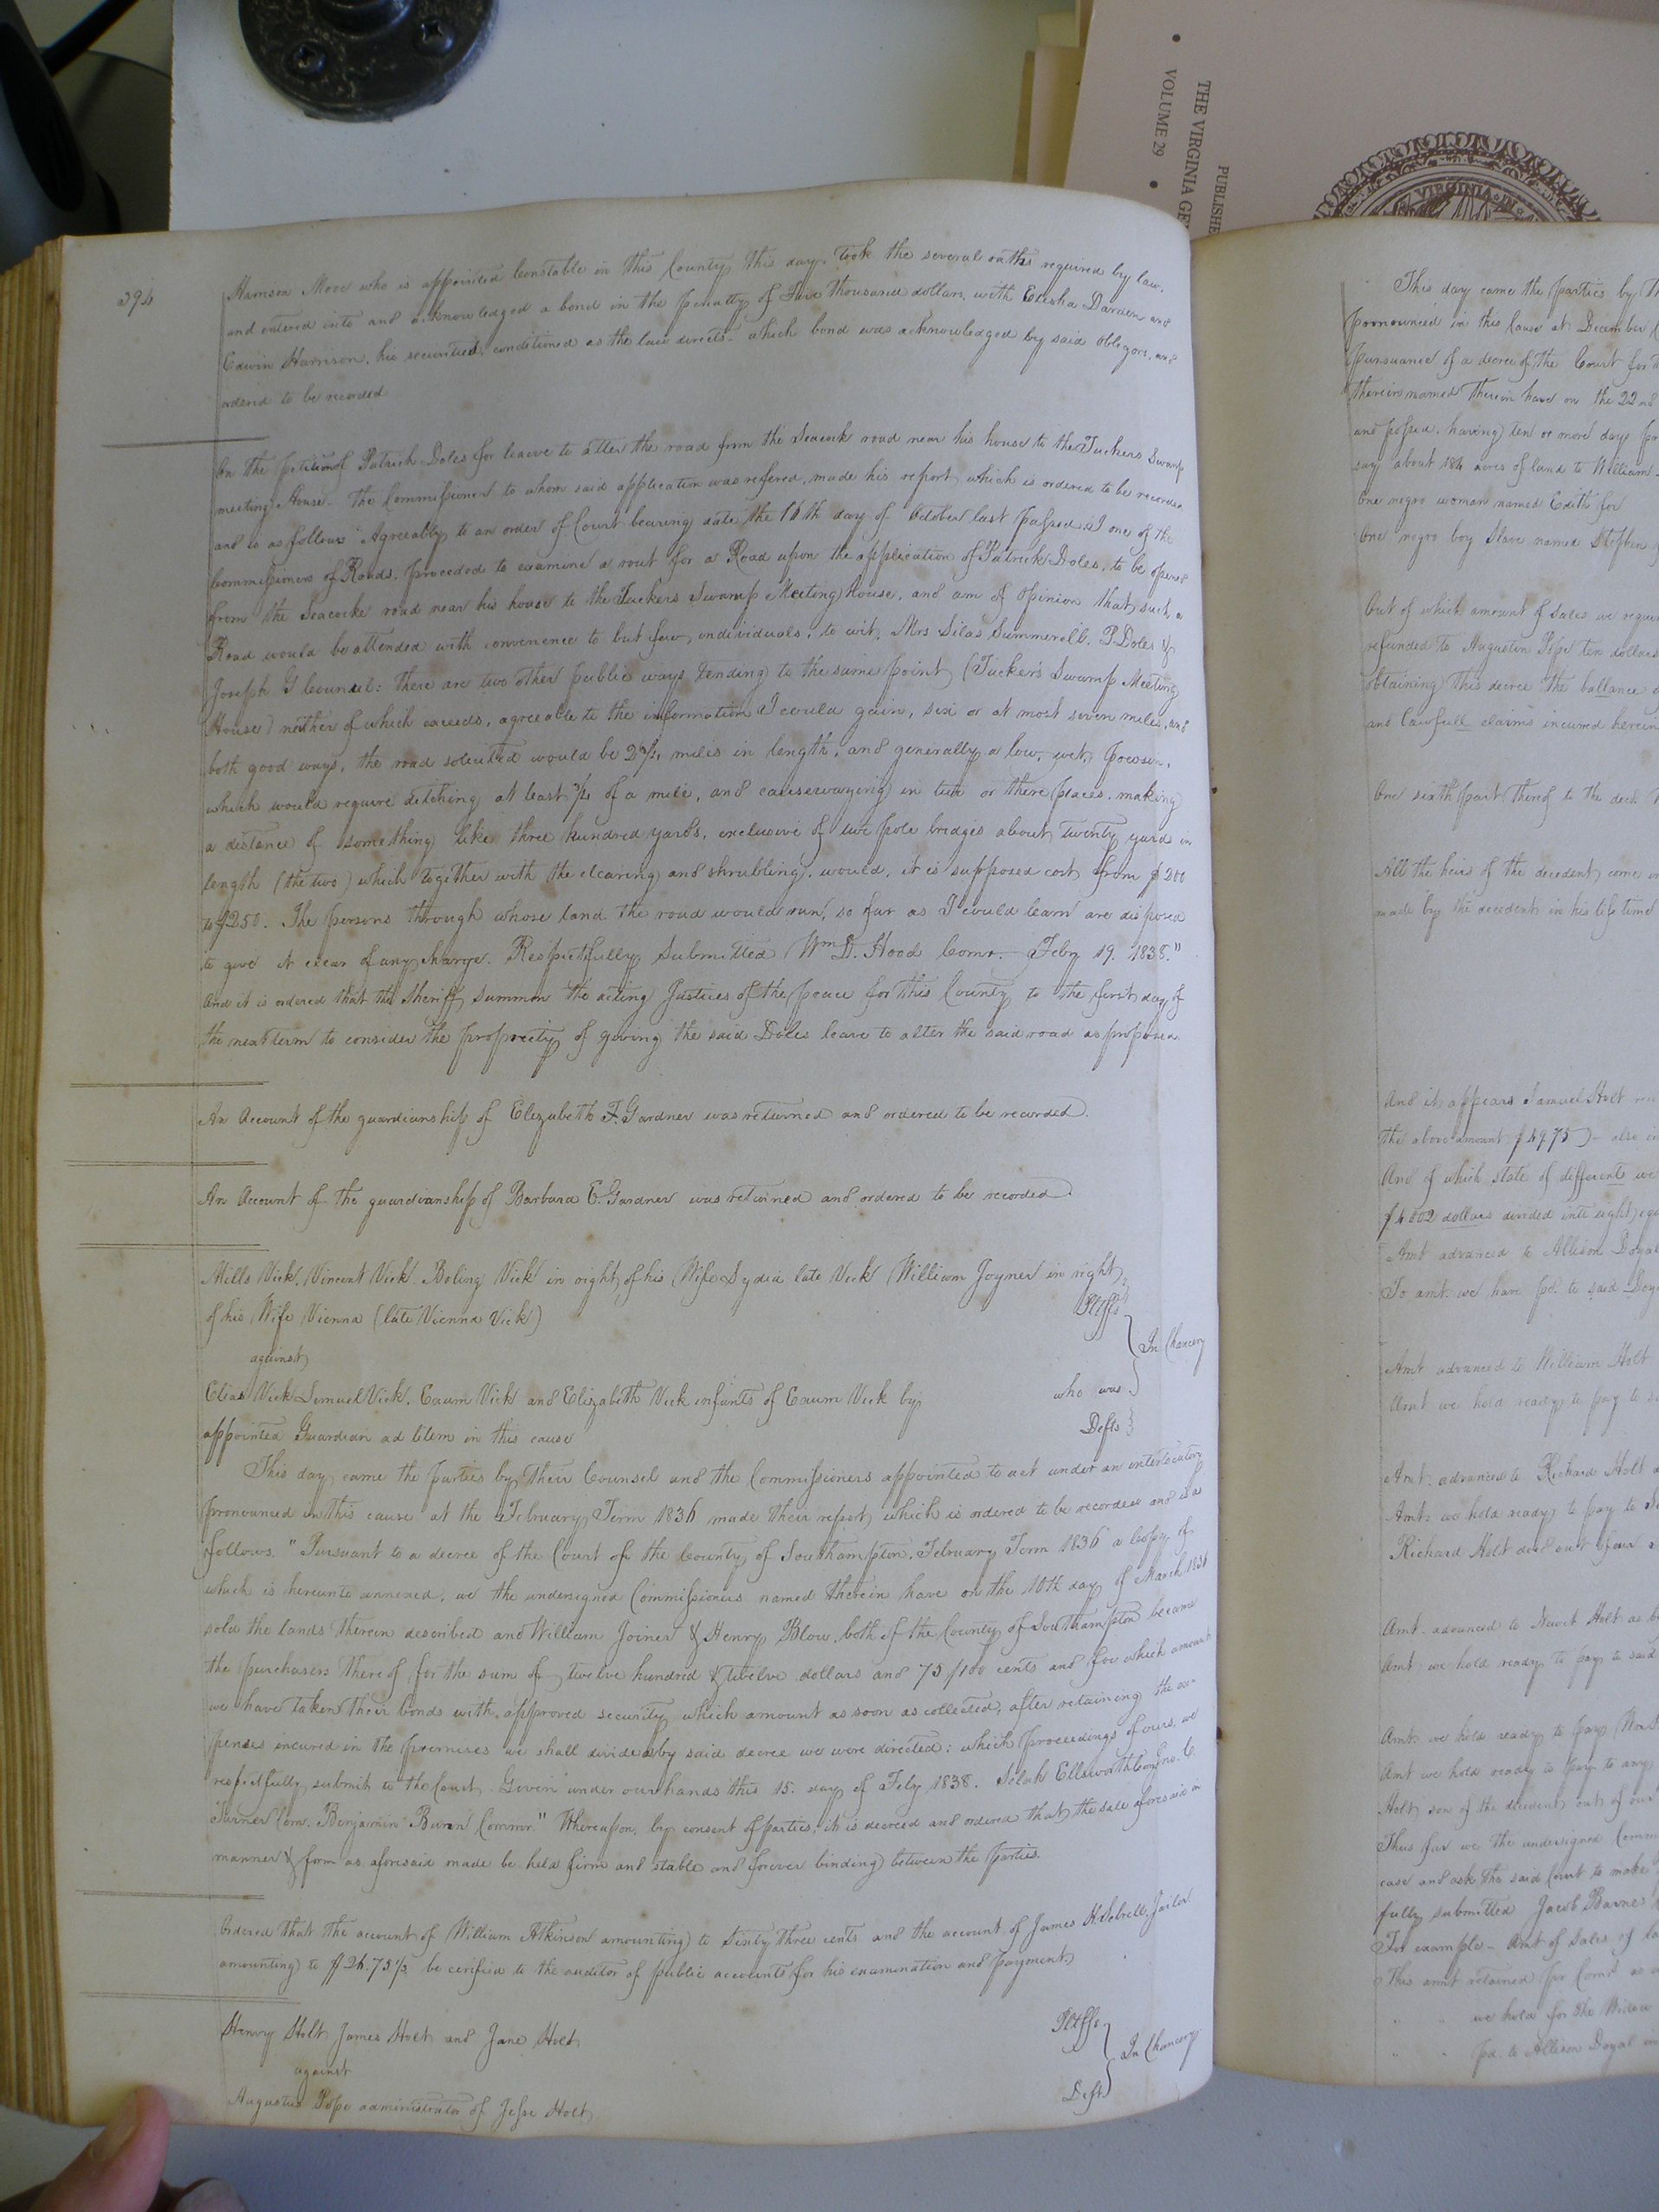 THE VIRGINIA GE
VOLUME 29
PUBLISHE
VIRGINIA
394
Hamson Moor who is appointed Constable in this County this day took the several oaths required by law,
and entered into and acknowledged a bond in the penalty of two thousand dollars, with Elisha Darden and
Edwin Harrison, his securities conditioned as the law directs - which bond was acknowledged by said obligors, and
orderd to be recorded
On the petition of Patrick Doles for leave to alter the road from the Seacock road near his house to the Tuckers Swamp
meeting House. The Commissioner to whom said application was refered, made his report, which is ordered to be recorded
and is as follows "Agreeably to an order of Court bearing date the 16th day of October last passed, I one of the
Commissioners of Roads, proceeded to examine a rout for a Road upon the application of Patrick Doles, to be opened
from the Seacocke road near his house to the Tuckers Swamp Meeting House, and am of Opinion that such a
Road would be attended with convenience to but few individuals, to wit, Mrs Silas Summerell. P. Doles &
Joseph G Council: there are two other public ways tending to the same point (Tucker's Swamp Meeting
House) neither of which exceeds, agreeable to the information I could gain, six or at most seven miles, and
both good ways, the road solicited would be 2 3/4 miles in length, and generally a low, wet, poroson,
which would require ditching at least 3/4 of a mile, and causewaying in two or there places, making
a distance of something like three hundred yards, exclusive of two pole bridges about twenty yards in
length (the two) which together with the clearing and shrubbing, would, it is supposed cost from $200
to $250. The persons through whose land the road would run, so far as I could learn are disposed
to give it clear of any charge. Respectfully Submitted Wm D. Hood Comr. Feby 19. 1838."
And it is ordered that the Sheriff summon the acting Justices of the peace for this County to the first day of
the next term to consider the propriety of giving the said Doles leave to alter the said road as proposed.
An Account of the guardianship of Elizabeth F. Gardner was returned and ordered to be recorded.
An Account of the guardianship of Barbara E. Gardner was returned and ordered to be recorded.
Mills Vick, Vincent Vick, Boling Vick in right of his Wife Lydia late Vick William Joyner in right
of his Wife Vienna (late Vienna Vick) Pltffs
against In Chancery
Elias Vick Lemuel Vick, Exum Vick and Elizabeth Vick infants of Exum Vick by who was
appointed Guardian ad litem in this cause Defts
This day came the Parties by their Counsel and the Commissioners appointed to act under an interlocutory
pronounced in this cause at the February Term 1836 made their report which is ordered to be recorded and is as
follows. "Pursuant to a decree of the Court of the County of Southampton, February Term 1836 a copy of
which is hereunto annexed, we the undersigned Commissioners named therein have on the 10th day of March 1836
sold the lands therein described and William Joiner & Henry Blow both of the County of Southampton became
the purchasers thereof for the sum of twelve hundred & twelve dollars and 75/100 cents and for which amount
we have taken their bonds with approved security which amount as soon as collected, after retaining the ex-
penses incured in the premises we shall divide as by said decree we were directed; which proceedings of ours, we
respectfully submit to the Court. Given under our hands this 15. day of Feby 1838. Selah Ellsworth Com Jno. C.
Turner Com. Benjamin Commr." Whereupon, by consent of parties, it is decreed and ordered that the sale aforesaid in
manner & form as aforesaid made be held firm and stable and forever binding between the Parties.
Ordered that the account of William Atkinson amounting to Sixty three cents and the account of James Jailor
amounting to $ be cerified to the auditor of public accounts for his examination and payment
Henry Holt James Holt and Jane Holt Pltffs
against In Chancery
Augustus Pope administrator of Jesse Holt Deft
This day came the parties by Th
pronounced in this Cause at December
pursuance of a decree of the Court for
therein named Therein have on the 22nd
and passed. having ten or more days
say about 184 acres of land to William
One negro woman named Edith for
One negro boy Slave named Stephen
Out of which amount of Sales we
refunded to Augustin Pope ten dollars
obtaining this decree the ballance
and lawfull claims incured herein
One sixth part thereof to the decd.
All the heirs of the decedent come
made by the decedent in his life time
And it appears Samuel Holt
the above amount $4975 - also
And of which state of different we
$4002 dollars divided into eight
Amt advanced to Allison Doyal
To amt. we have pd. to said
Amt advanced to William Holt
Amt we hold ready to pay to
Amt. advanced to Richard Holt
Amt. we hold ready to pay to
Richard Holt decd out of our
Amt. advanced to Holt as
Amt we hold ready to pay to said
Amt. we hold ready to pay
Amt we hold ready to pay to any
Holt, son of the decedent, out of our
Thus far we the undersigned Comm
case and ask the said Court to make
fully submitted Jacob
For example - Amt of Sales of
This amt retained for Comr. as
we hold for the Widow
pd. to Allison Doyal